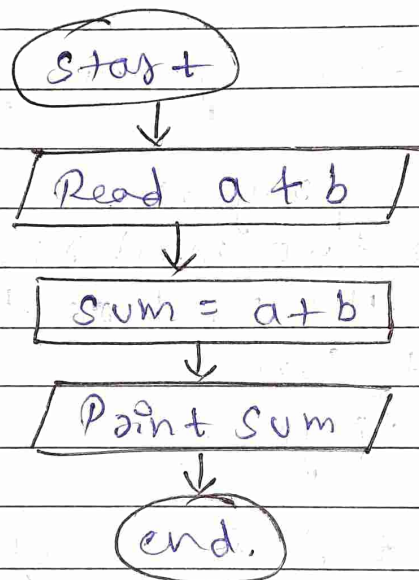 start
Read a + b
sum = a+b
Print sum
end.